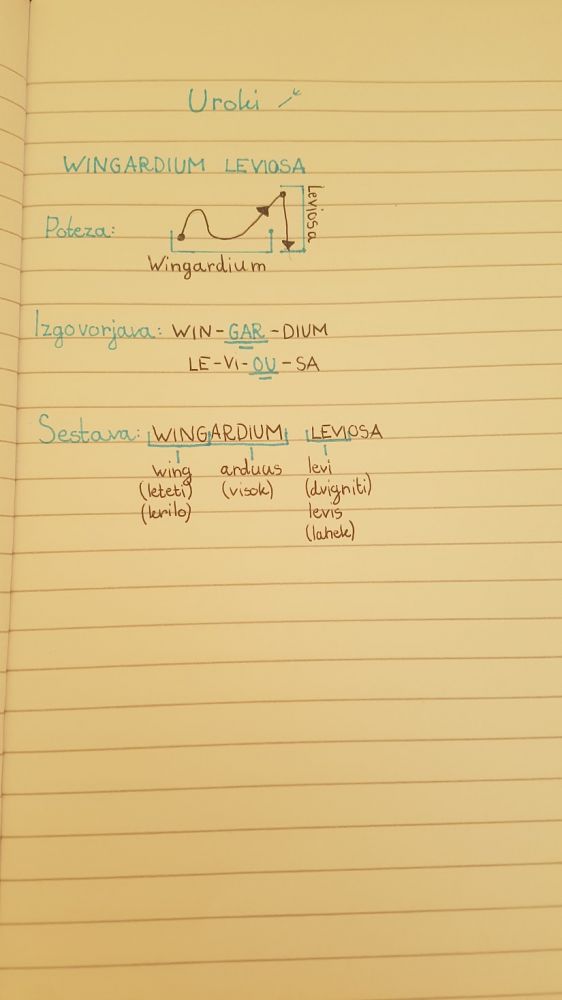 Uroki
WINGARDIUM LEVIOSA
Poteza:
Leviosa
Wingardium
Izgovorjava: WIN-GAR-DIUM
LE-VI-OU-SA
Sestava: WINGARDIUM LEVIOSA
wing arduus levi
(leteti) (visok) (dvigniti)
(krilo) levis
(lahek)